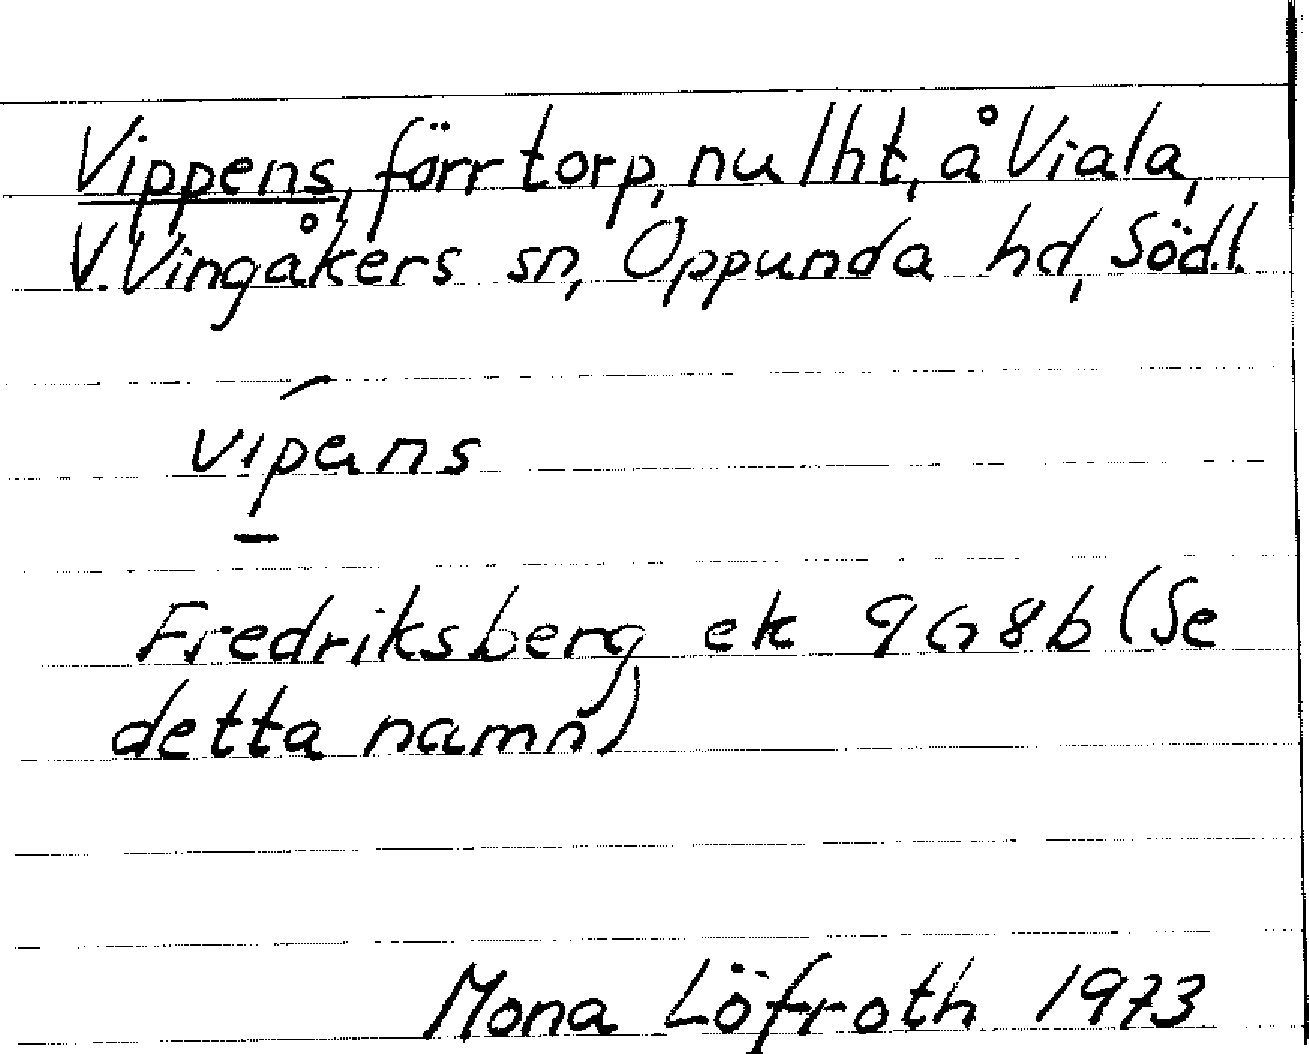 Vippens, förr torp, nu lht, å Viala,
V. Vingåkers sn, Oppunda hd, Södl.
vípans
Fredriksberg ek 9G8b (Se
detta namn)
Mona Löfroth 1973